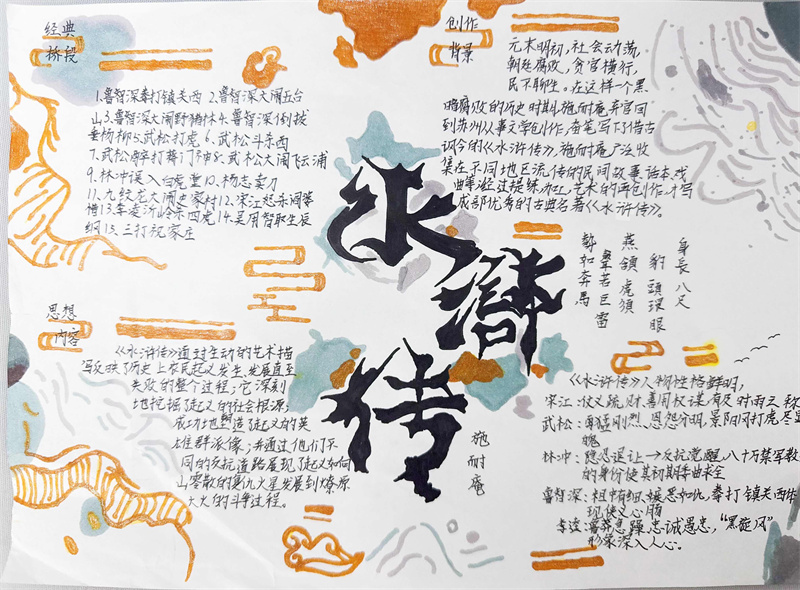 经典
桥段
1.鲁智深拳打镇关西 2.鲁智深大闹五台
山3.鲁智深大闹野猪林4.鲁智深倒拔
垂杨柳5.武松打虎 6.武松斗杀西
7.武松醉打蒋门神8.武松大闹飞云浦
9.林冲误入白虎堂10.杨志卖刀
11.九纹龙大闹史家村12.宋江怒杀阎婆
惜13.李逵沂岭杀四虎14.吴用智取生辰
纲15.三打祝家庄
创作
背景
元末明初,社会动荡,
朝廷腐败,贪官横行,
民不聊生。在这样一个黑
暗腐败的历史时期,施耐庵弃官回
到苏州从事文学创作,奋笔写下了借古
讽今的《水浒传》,施耐庵广泛收
集在不同地区流传的民间故事、话本、戏
曲等,经过提炼、加工,艺术的再创作,才写
成部优秀的古典名著《水浒传》。
身長八尺
豹頭環眼
燕頷虎須
聲若巨雷
勢如奔馬
水浒传
施耐庵
思想
内容
《水浒传》通过生动的艺术描
写反映了历史上农民起义发生、发展直至
失败的整个过程;它深刻
地挖掘了起义的社会根源;
成功地塑造了起义的英
雄群派像;并通过他们不
同的反抗道路展现了起义如何
由零散的复仇火星发展到燎原
大火的斗争过程。
《水浒传》人物性格鲜明,
宋江:仗义疏财、善用权谋,有及时雨之称
武松:勇猛刚烈、恩怨分明,景阳冈打虎尽显
魄
林冲:隐忍退让→反抗觉醒,八十万禁军教
的身份使其初期委曲求全
鲁智深:粗中有细、嫉恶如仇,拳打镇关西体
现侠义心肠
李逵:鲁莽急躁、忠诚愚忠,“黑旋风”
形象深入人心。